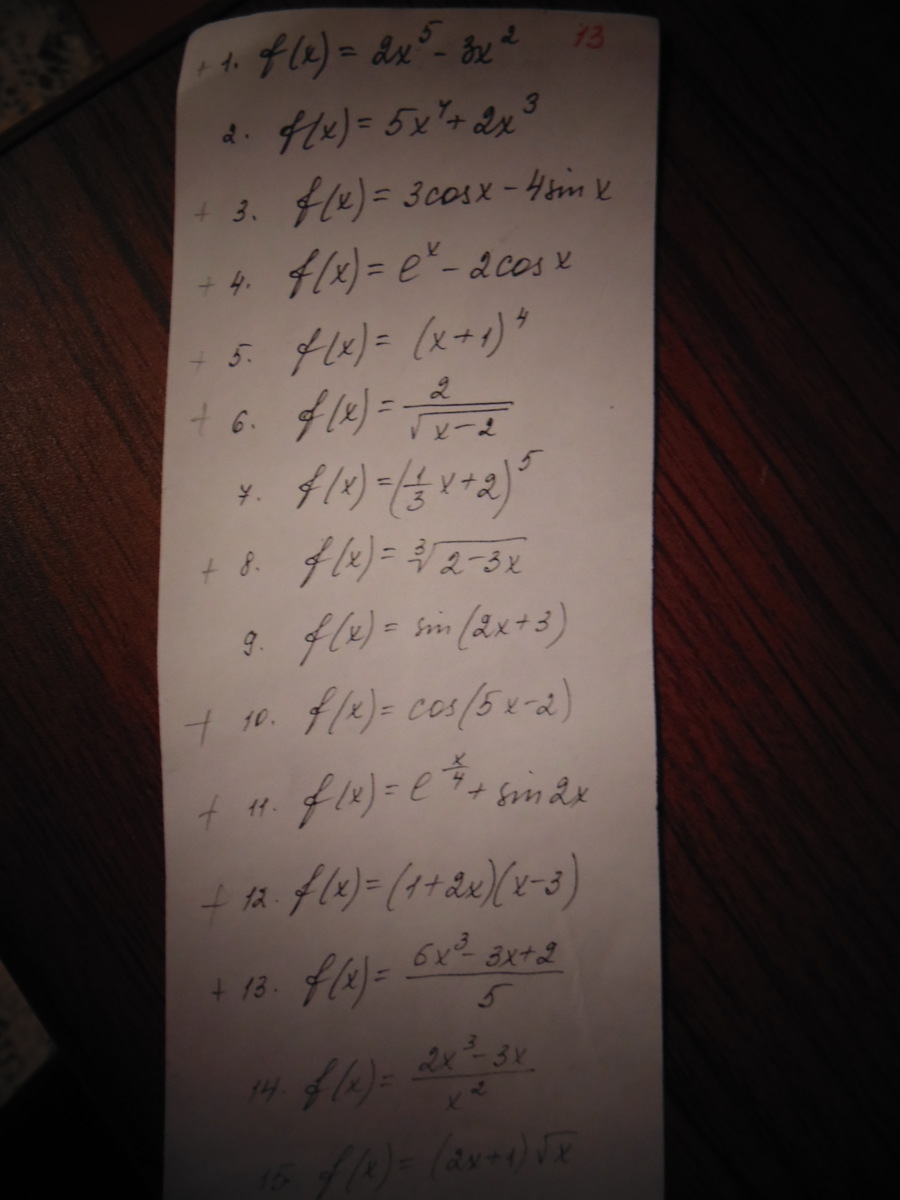 13
+ 1. f(x) = 2x⁵ - 3x²
2. f(x) = 5x⁴ + 2x³
+ 3. f(x) = 3cosx - 4sinx
+ 4. f(x) = eˣ - 2cosx
+ 5. f(x) = (x+1)⁴
+ 6. f(x) = 2/√(x-2)
7. f(x) = (1/3 x+2)⁵
+ 8. f(x) = ∛(2-3x)
9. f(x) = sin(2x+3)
+ 10. f(x) = cos(5x-2)
+ 11. f(x) = e^(x/4) + sin2x
+ 12. f(x) = (1+2x)(x-3)
+ 13. f(x) = (6x³ - 3x+2)/5
14. f(x) = (2x³ - 3x)/x²
15. f(x) = (2x+1)√x